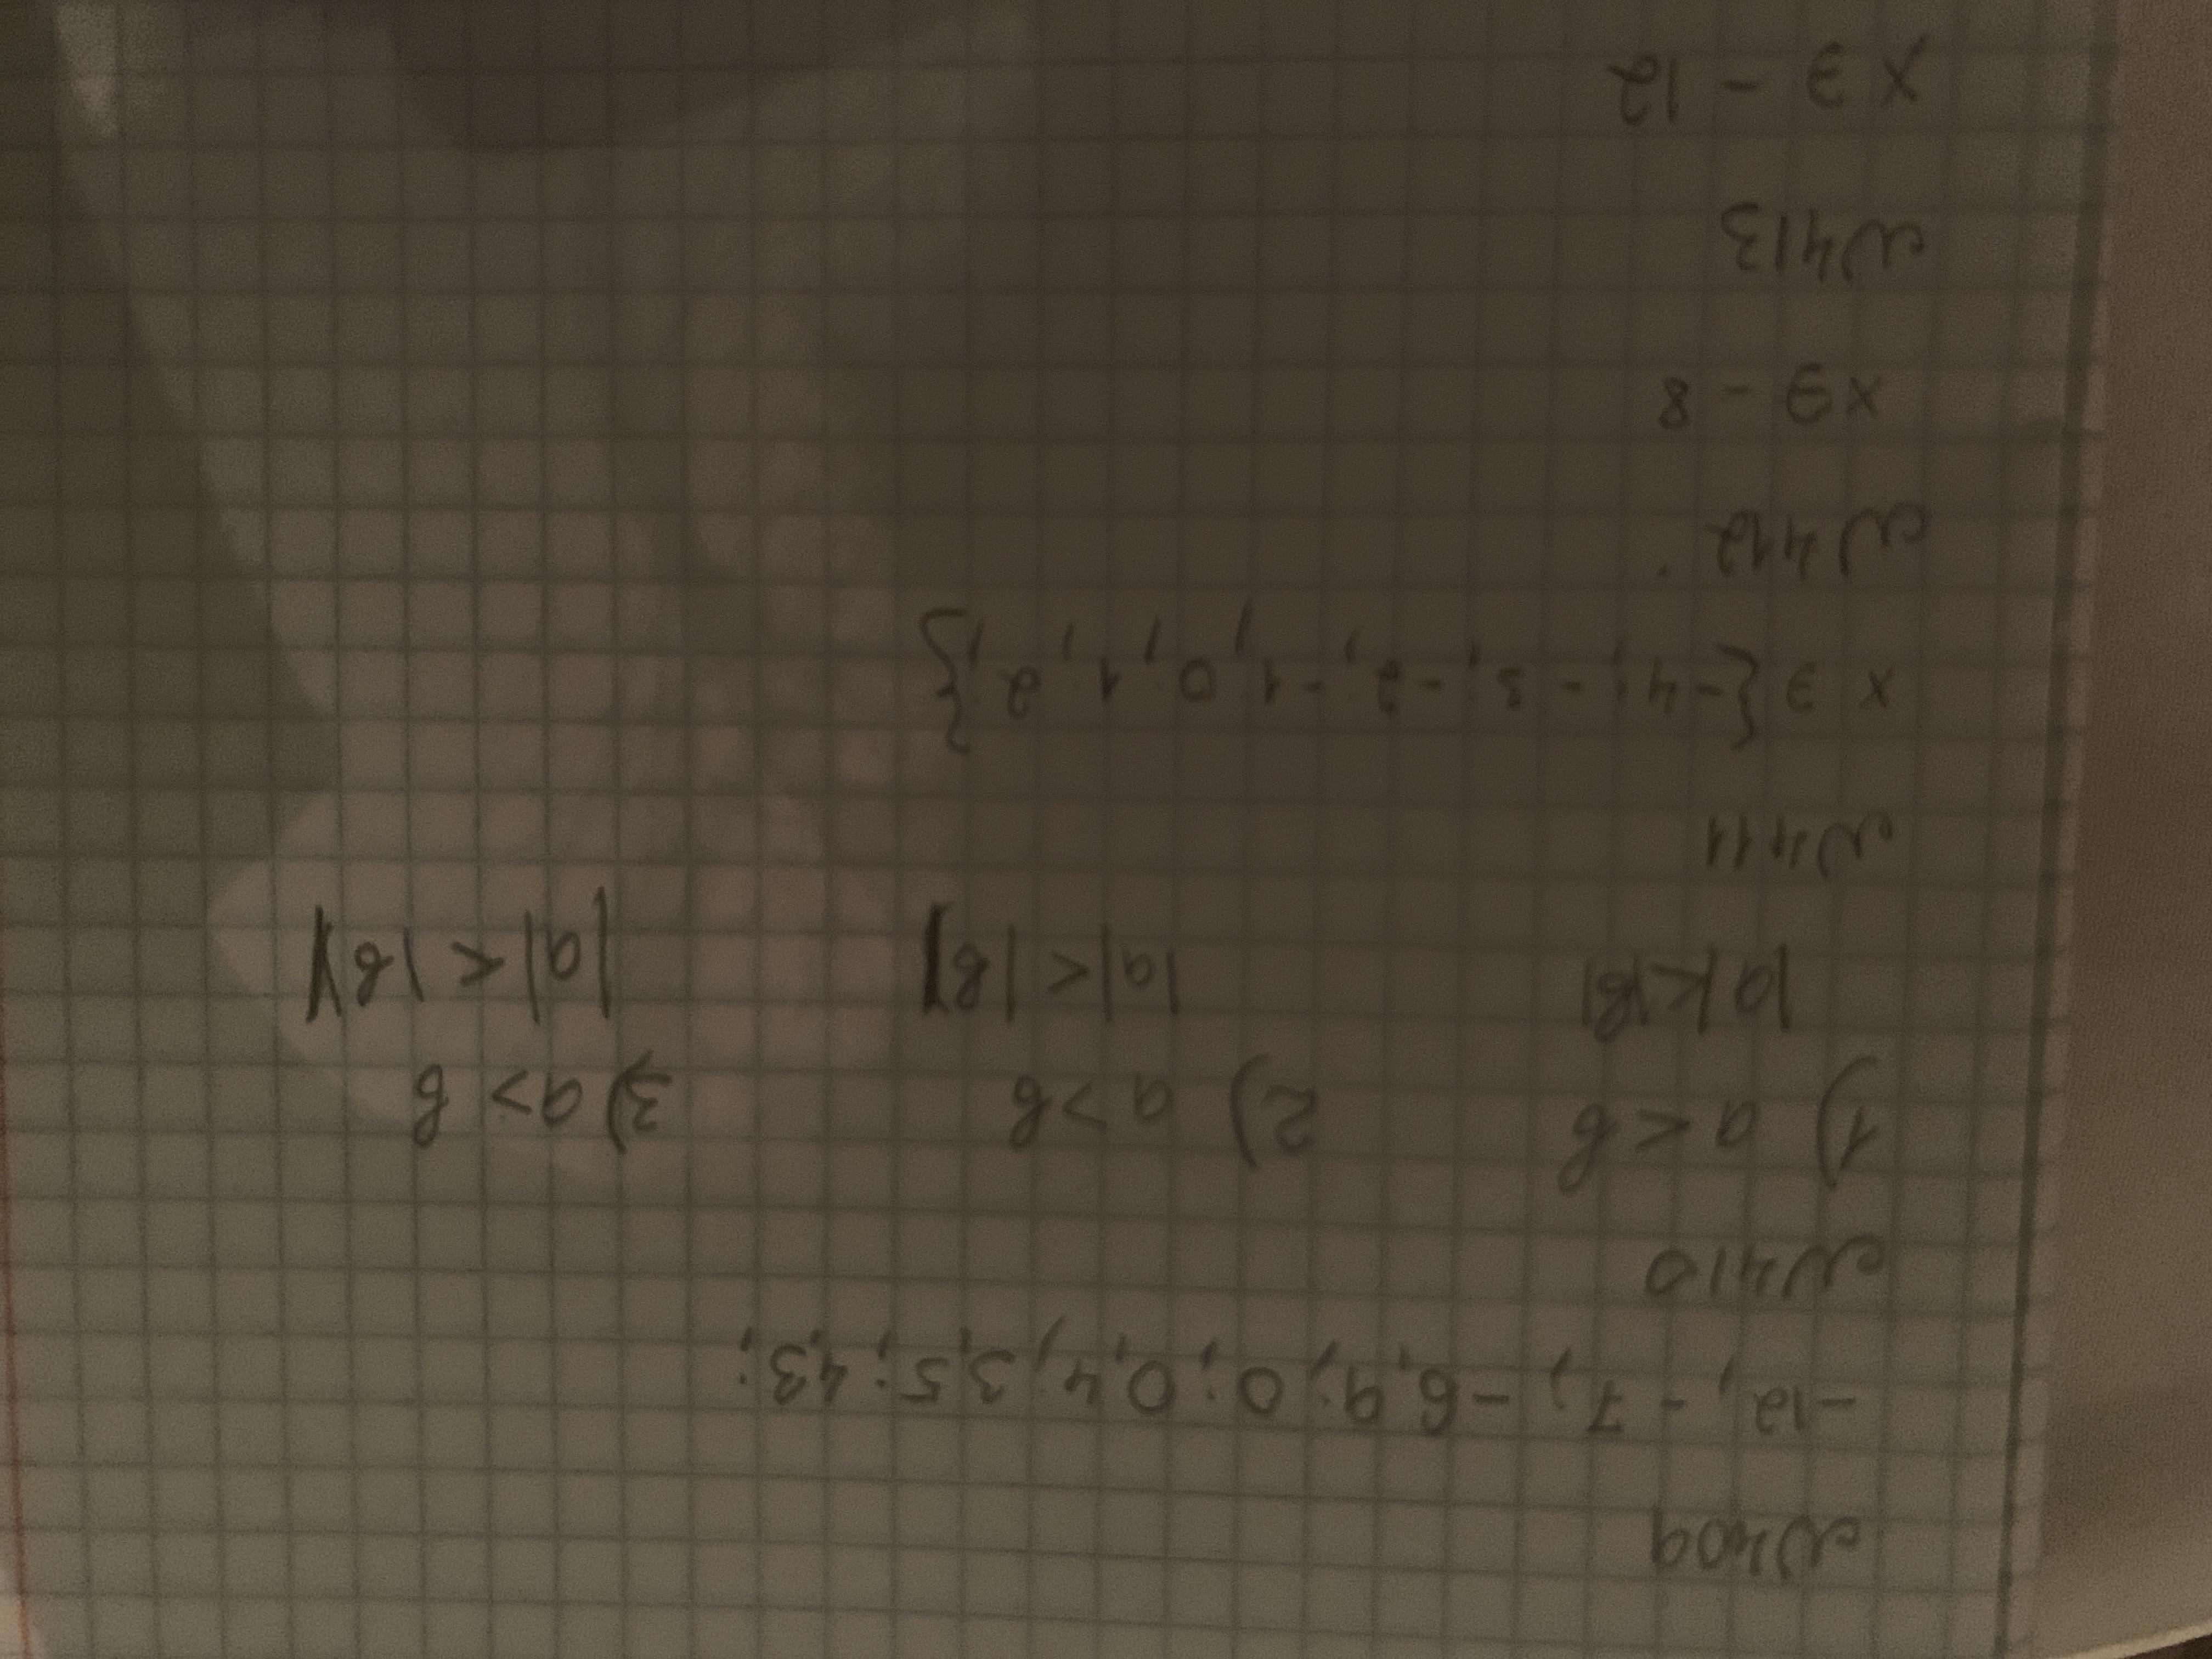 №409
-12; -7; -6,9; 0; 0,4; 3,5; 4,3;
№410
1) a < в 2) a > в 3) a > в
|a|<|в| |a| < |в| |a| < |в|
№411
x Э {-4; -3; -2; -1; 0; 1; 2;}
№412
x Э - 8
№413
x Э - 12